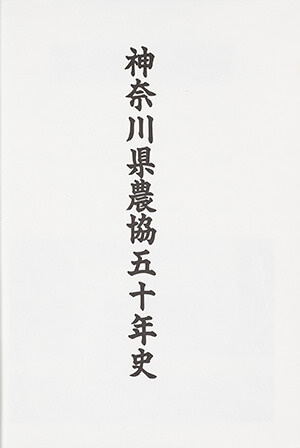 神奈川県農協五十年史